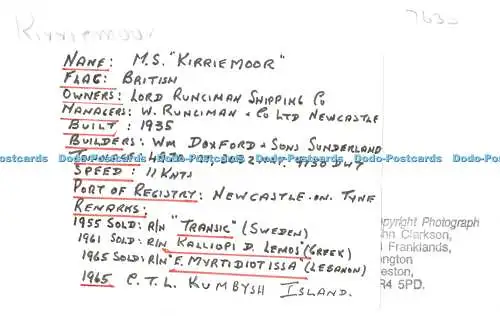 Kirriemoor
763
NAME: M.S. "KIRRIEMOOR"
FLAG: BRITISH
OWNERS: LORD RUNCIMAN SHIPPING CO
MANAGERS: W. RUNCIMAN & CO LTD NEWCASTLE
BUILT: 1935
BUILDERS: WM DOXFORD & SONS SUNDERLAND
Dodo-Postcards Dodo-Postcards Dodo-Postcards Dodo-Postcards Dodo-Postcards Dodo-Postcards
SPEED: 11 KNTS
PORT OF REGISTRY: NEWCASTLE. ON. TYNE
REMARKS:
1955 SOLD: R/N "TRANSIC" (SWEDEN)
1961 SOLD: R/N KALLIOPI D. LEMOS" (GREEK)
1965 SOLD: R/N "E. MYRTIDIOTISSA" (LEBANON)
1965 C.T.L. KUMBYSH ISLAND.
opyright Photograph
hn Clarkson,
Franklands,
ngton
eston,
R4 5PD.